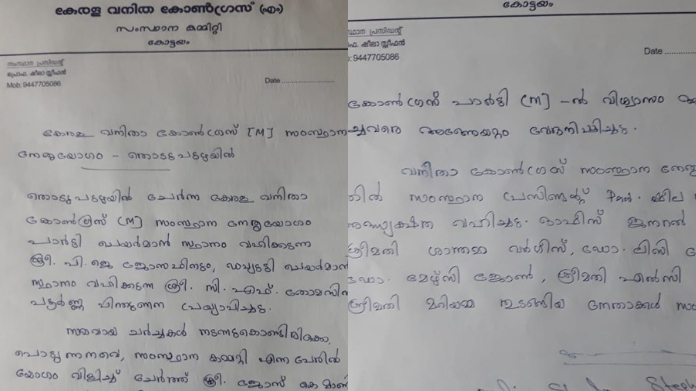 കേരള വനിത കോൺഗ്രസ് (എം)
സംസ്ഥാന കമ്മിറ്റി
കോട്ടയം
സംസ്ഥാന പ്രസിഡന്റ്
പ്രൊഫ. ഷീലാ സ്റ്റീഫൻ
Mob: 9447705086
Date
കേരള വനിതാ കോൺഗ്രസ് [M] സംസ്ഥാന
നേതൃയോഗം - തൊടുപുഴയിൽ
തൊടുപുഴയിൽ ചേർന്ന കേരള വനിതാ
കോൺഗ്രസ് [M] സംസ്ഥാന നേതൃയോഗം
പാർട്ടി ചെയർമാൻ സ്ഥാനം വഹിക്കുന്ന
ശ്രീ. പി. ജെ ജോസഫിനും, ഡപ്യൂട്ടി ചെയർമാൻ
സ്ഥാനം വഹിക്കുന്ന ശ്രീ. സി. എഫ്. തോമസിന
പൂർണ്ണ പിന്തുണ പ്രഖ്യാപിച്ചു.
സമവായ ചർച്ചകൾ നടന്നുകൊണ്ടിരിക്കു
സംസ്ഥാന കമ്മറ്റി എന്ന പേരിൽ
യോഗം വിളിച്ച് ചേർത്ത് ശ്രീ. ജോസ് കെ മാണി
കോട്ടയം
സ്ഥാന പ്രസിഡന്റ്
ഫ. ഷീലാ സ്റ്റീഫൻ
: 9447705086
Date
കോൺഗ്രസ് പാർട്ടി [M] -ൽ വിശ്വാസം
വനിതാ കോൺഗ്രസ് സംസ്ഥാന നേതൃ
ൽ സംസ്ഥാന പ്രസിഡന്റ് ഷീല
വഹിച്ചു. ഓഫീസ് ജനറൽ
ശ്രീമതി ശാന്തമ്മ വർഗീസ്, ഡോ.
ഡോ. മേഴ്സി ജോൺ, ശ്രീമതി എൽസി
ശ്രീമതി മറിയമ്മ തുടങ്ങിയ നേതാക്കൾ